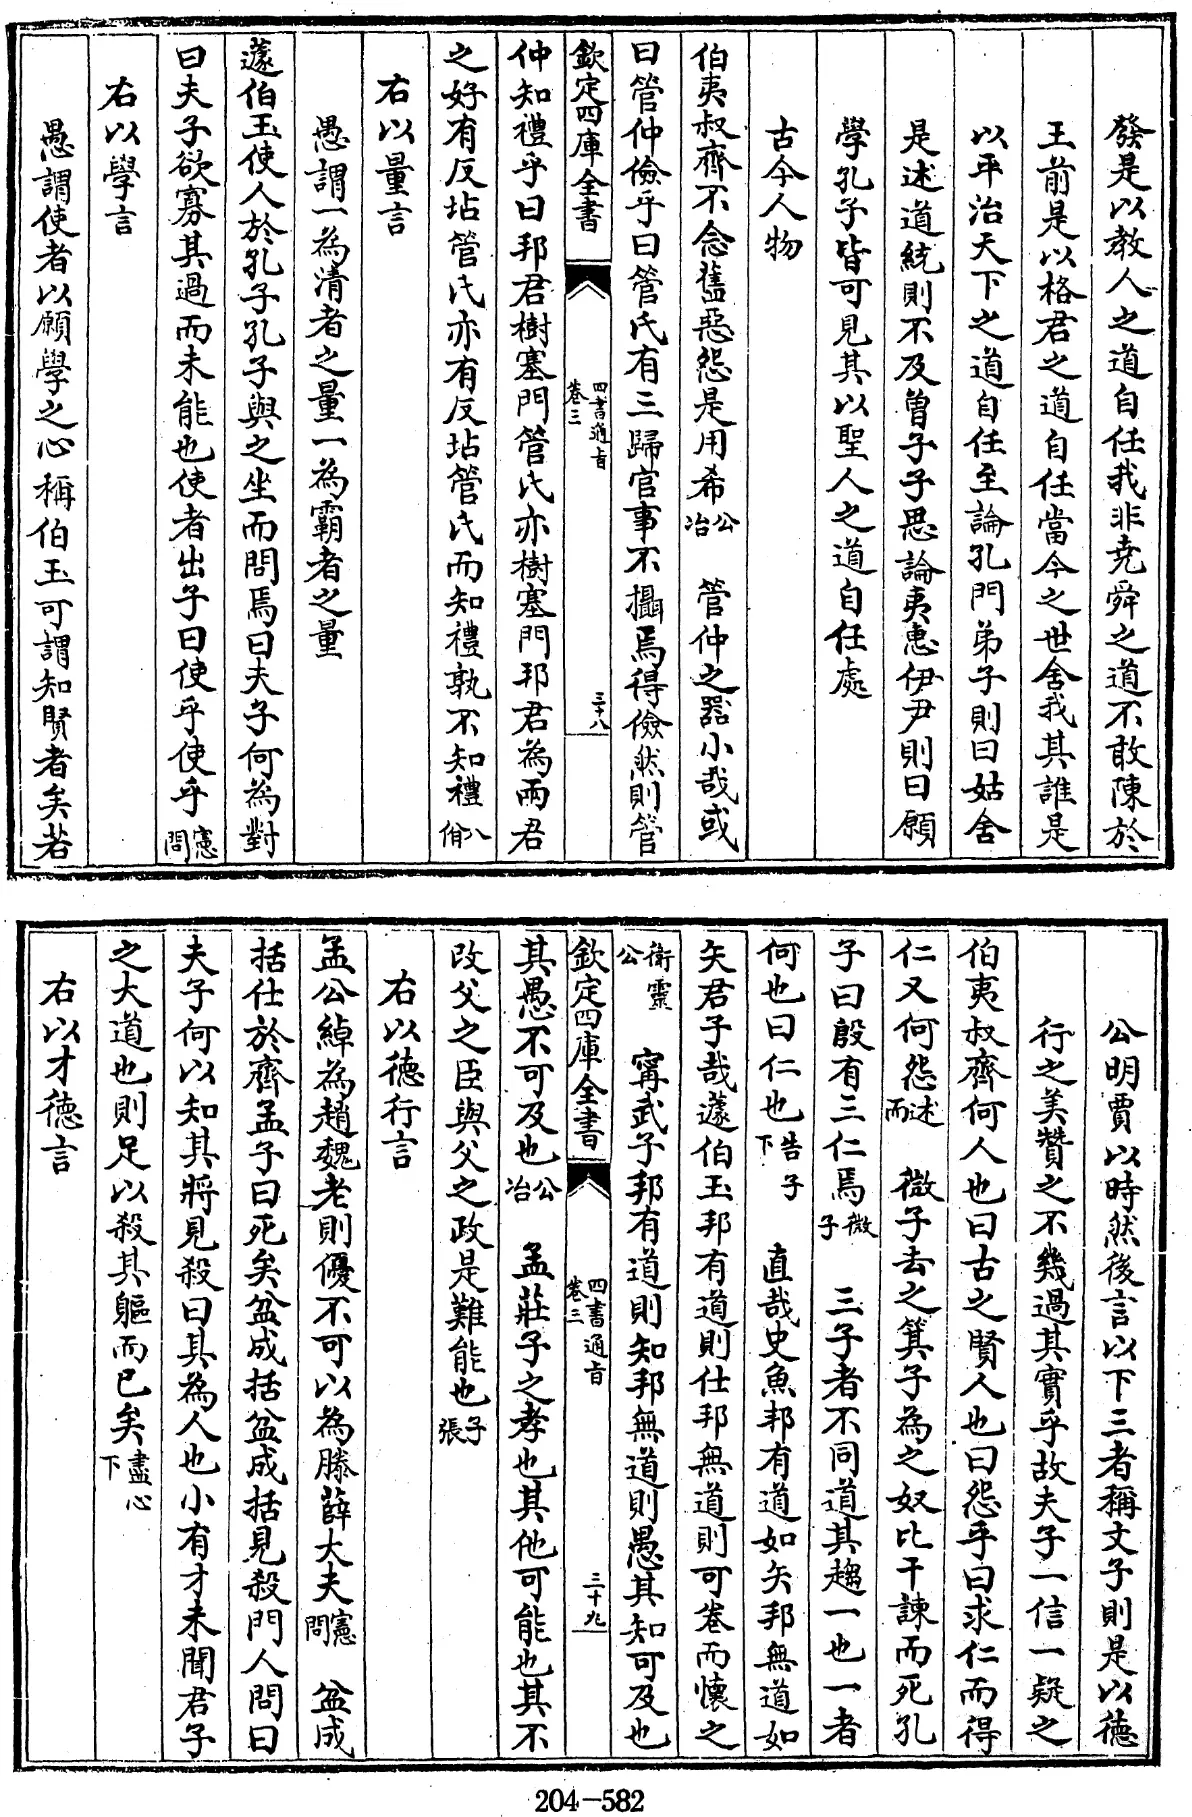 發是以教人之道自任我非堯舜之道不敢陳於
王前是以格君之道自任當今之世舍我其誰是
以平治天下之道自任至論孔門弟子則曰姑舍
是述道統則不及曾子子思論夷惠伊尹則曰願
學孔子皆可見其以聖人之道自任處
古今人物
伯夷叔齊不念舊惡怨是用希公冶　管仲之器小哉或
曰管仲儉乎曰管氏有三歸官事不攝焉得儉然則管
欽定四庫全書　四書通旨卷三　三十八
仲知禮乎曰邦君樹塞門管氏亦樹塞門邦君為兩君
之好有反坫管氏亦有反坫管氏而知禮孰不知禮八佾
右以量言
愚謂一為清者之量一為霸者之量
蘧伯玉使人於孔子孔子與之坐而問焉曰夫子何為對
曰夫子欲寡其過而未能也使者出子曰使乎使乎憲問
右以學言
愚謂使者以願學之心稱伯玉可謂知賢者矣若
公明賈以時然後言以下三者稱文子則是以德
行之美贊之不幾過其實乎故夫子一信一疑之
伯夷叔齊何人也曰古之賢人也曰怨乎曰求仁而得
仁又何怨述而　微子去之箕子為之奴比干諫而死孔
子曰殷有三仁焉微子　三子者不同道其趨一也一者
何也曰仁也告子下　直哉史魚邦有道如矢邦無道如
矢君子哉蘧伯玉邦有道則仕邦無道則可卷而懷之
衛靈公　甯武子邦有道則知邦無道則愚其知可及也
欽定四庫全書　四書通旨卷三　三十九
其愚不可及也公冶　孟莊子之孝也其他可能也其不
改父之臣與父之政是難能也子張
右以德行言
孟公綽為趙魏老則優不可以為滕薛大夫憲問　盆成
括仕於齊孟子曰死矣盆成括盆成括見殺門人問曰
夫子何以知其將見殺曰其為人也小有才未聞君子
之大道也則足以殺其軀而已矣盡心下
右以才德言
204-582